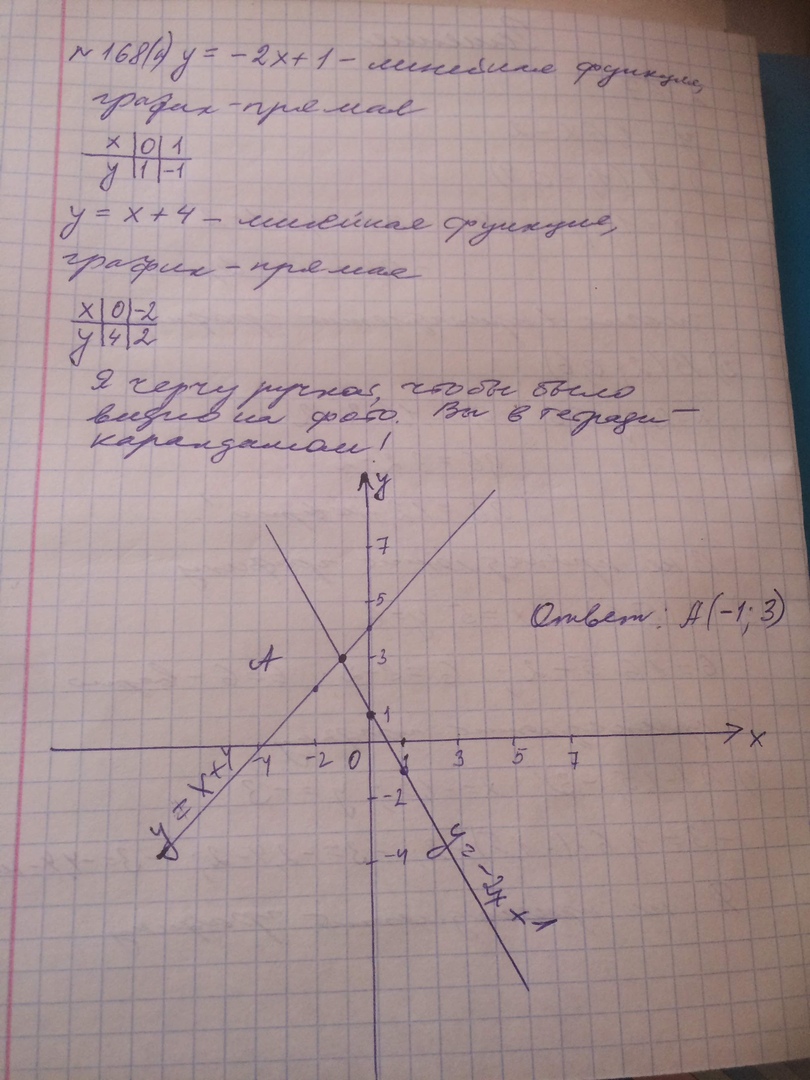 №168(г) y = -2x+1 - линейная функция,
график - прямая
x | 0 | 1
y | 1 | -1
y = x+4 - линейная функция,
график - прямая
x | 0 | -2
y | 4 | 2
Я черчу ручкой, чтобы было
видно на фото. Вы в тетради -
карандашом!
y
7
5
Ответ: A(-1; 3)
A
3
1
x
-4 -2 0 1 3 5 7
y = x+4
-2
-4
y = -2x+1